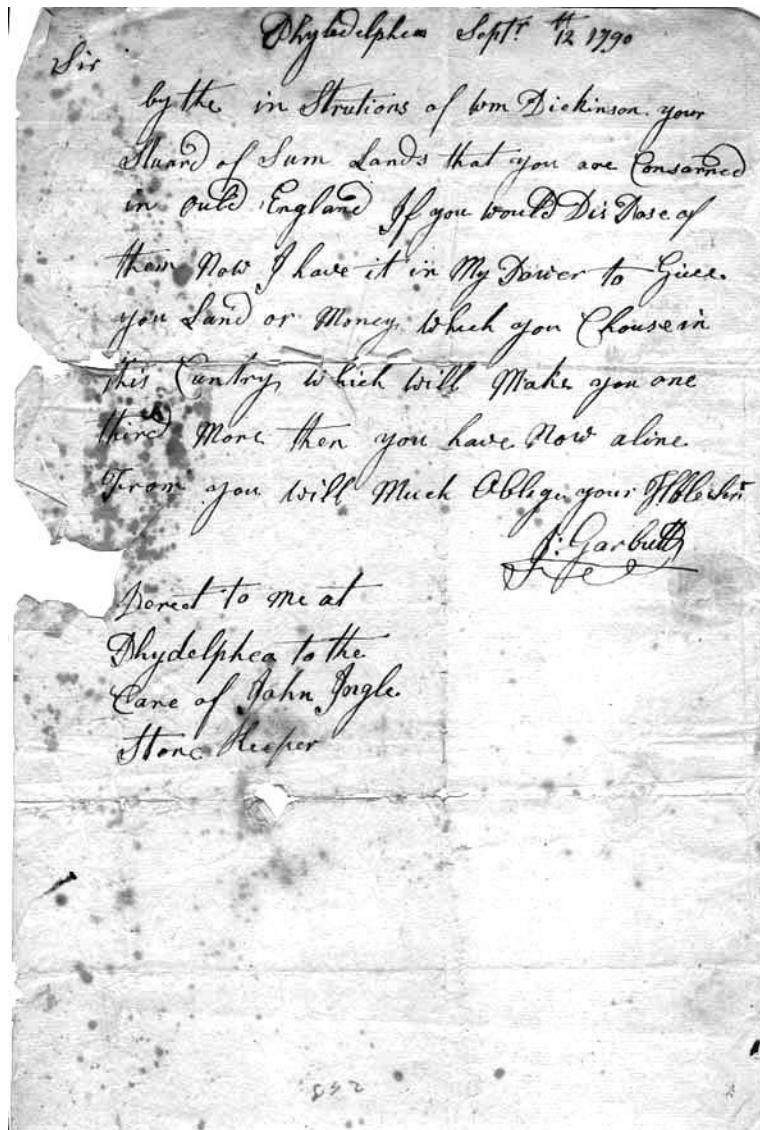 Phyledelphea Septr 12th 1790
Sir
by the in Strutions of Wm Dickinson your
Stuard of Sum Lands that you are Consarned
in ould England If you would Dis Pose of
them Now I have it in My Power to Give
you Land or Money which you Chouse in
this Cuntry which will Make you one
third More then you have Now aline
From you will Much Oblige your Hble Servt
J: Garbutt
Derect to me at
Phydelphea to the
Care of John Ingle
Store Keeper